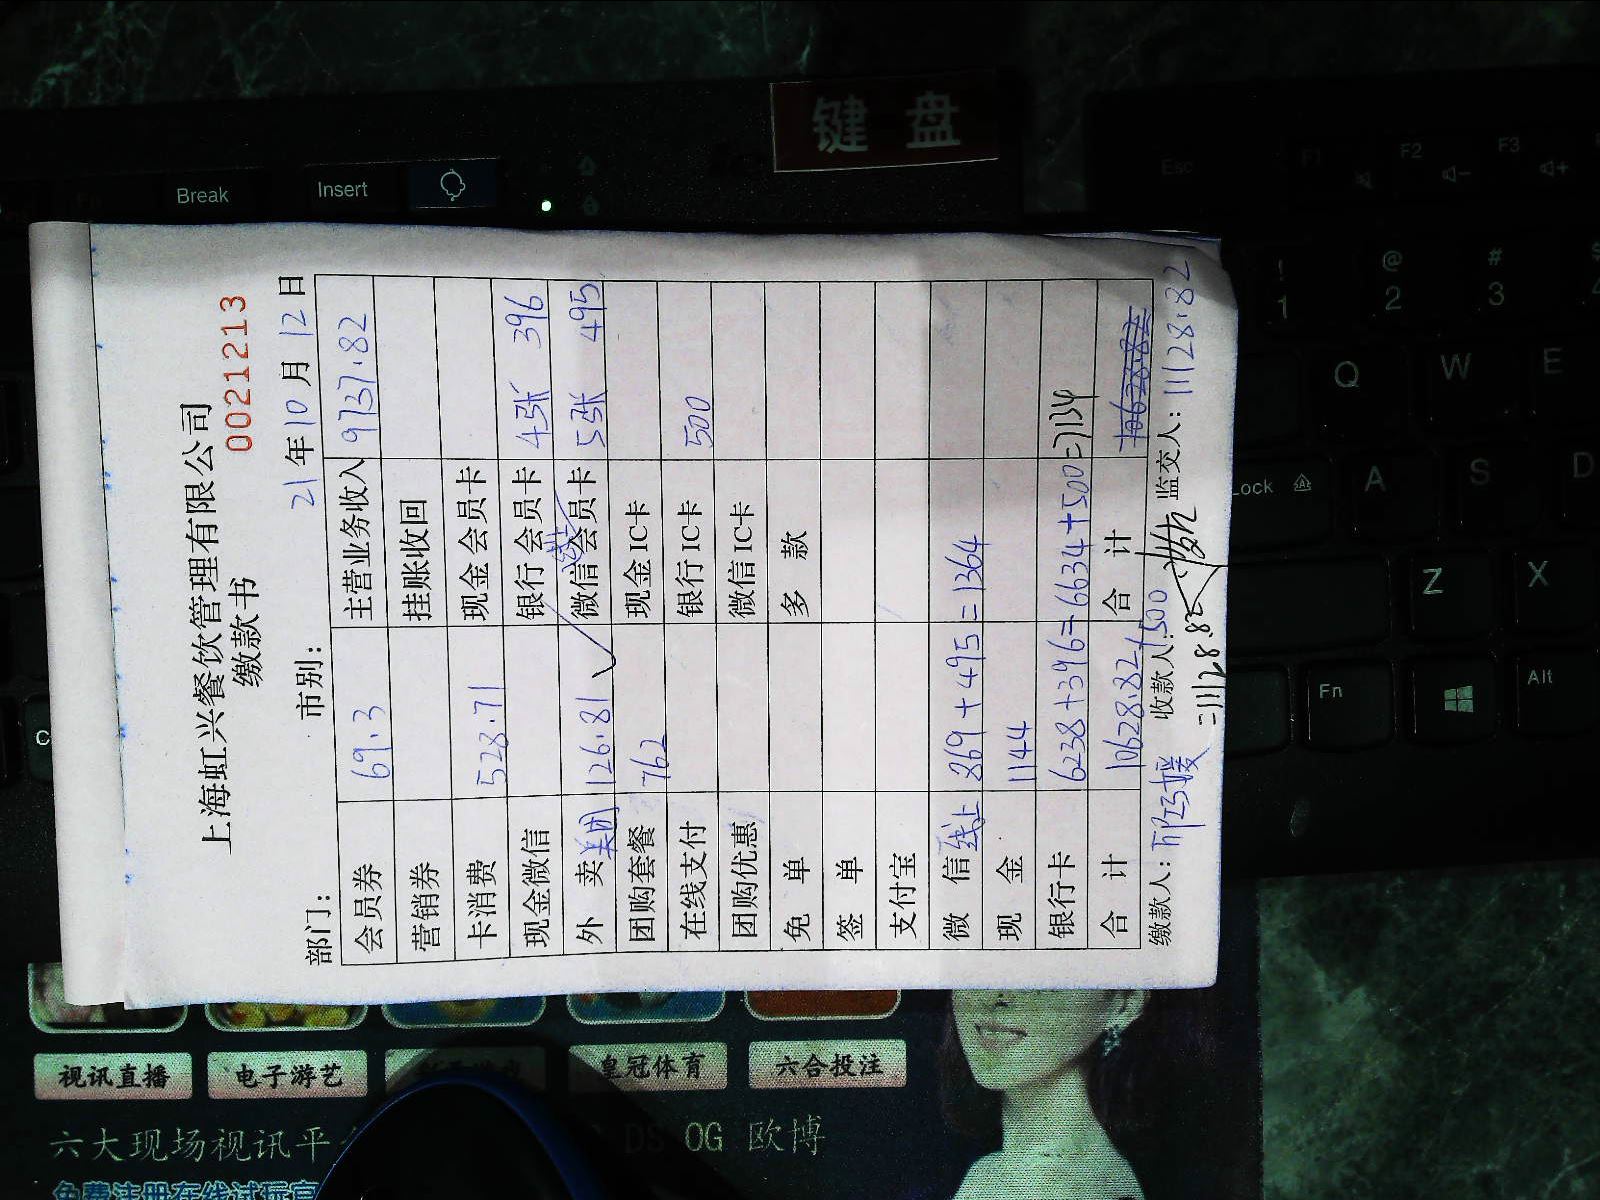 键 盘
Break
Insert
Esc
F1
F2
F3
上海虹兴餐饮管理有限公司
缴款书
0021213
部门：
市别：
21年10月12日
会员券 69.3 主营业务收入 9737.82
营销券 挂账收回
卡消费 528.71 现金会员卡
现金微信 银行会员卡 4张 396
外 卖 美团 126.81 微信会员卡 5张 495
团购套餐 762 现金IC卡
在线支付 银行IC卡 500
团购优惠 微信IC卡
免 单 多 款
签 单
支付宝
微 信 线上 869+495=1364
现 金 1144
银行卡 6238+396=6634+500=7134
合 计 10628.82+500 合 计 10628.82
=11128.82
缴款人：
收款人：
监交人：11128.82
! 1
@ 2
# 3
Q
W
E
Lock
A
S
D
Z
X
Fn
Alt
视讯直播
电子游艺
皇冠体育
六合投注
六大现场视讯平
DS OG 欧博
免费注册在线试玩